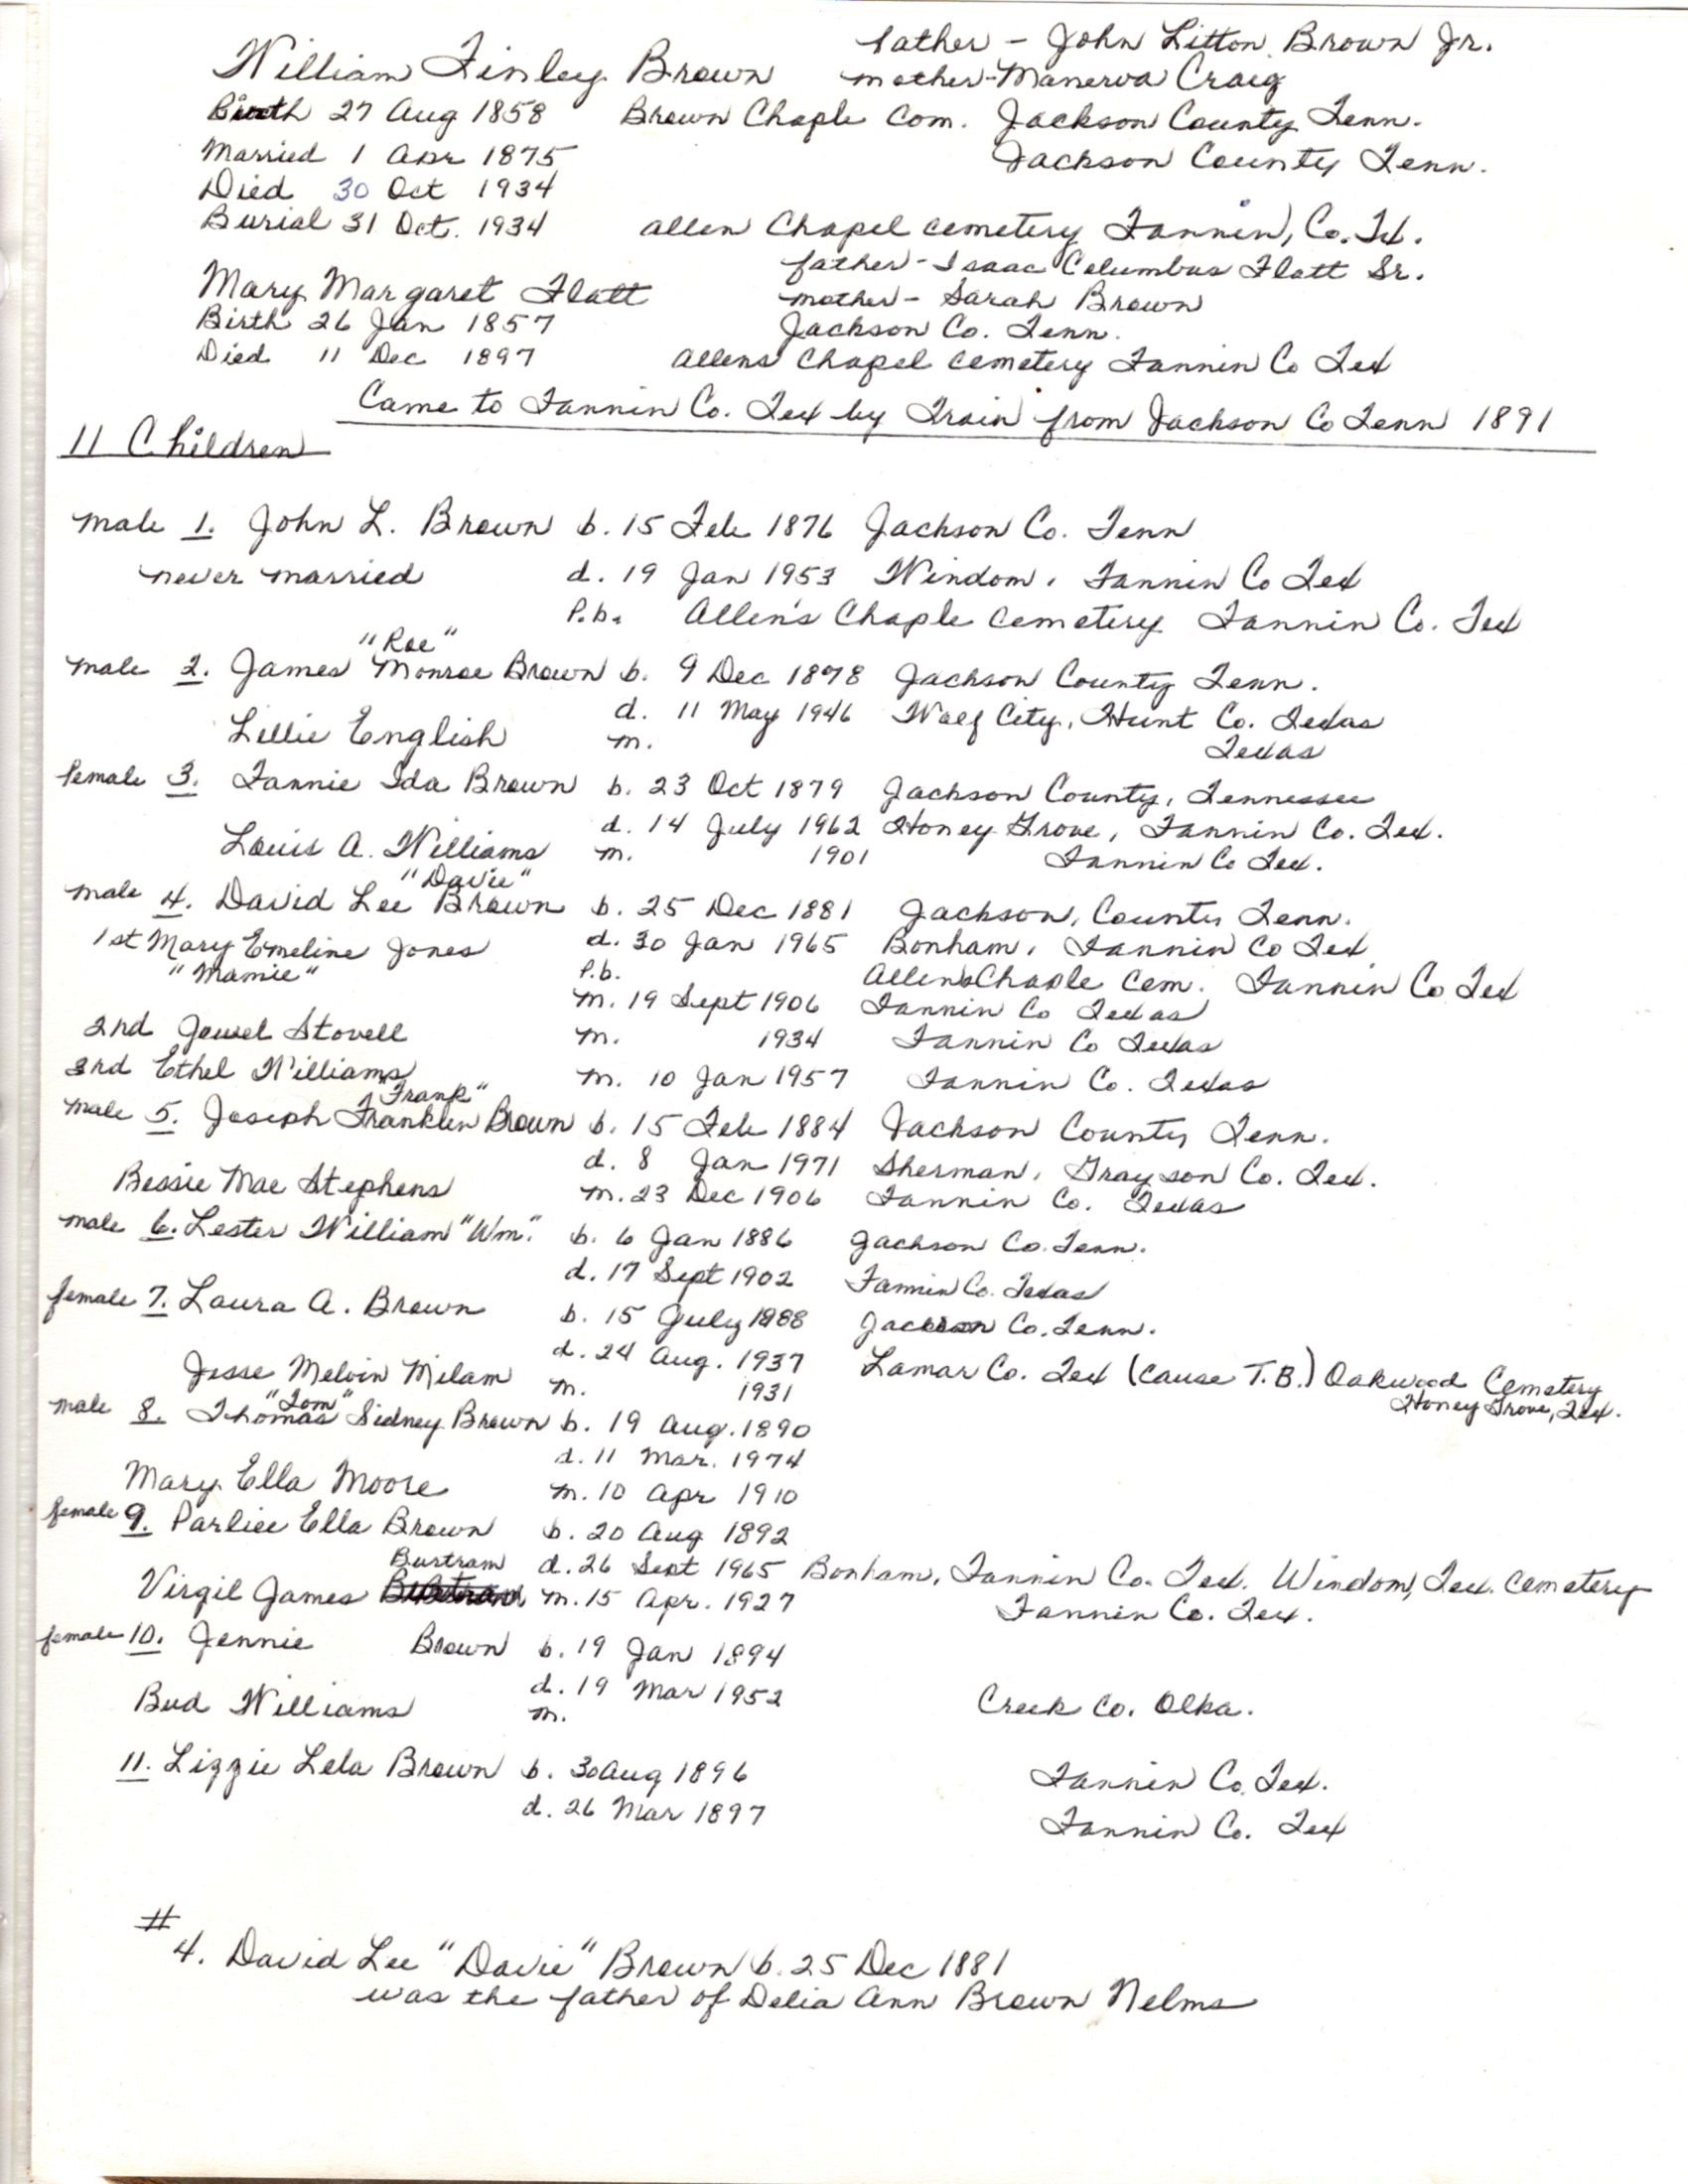 father - John Litton Brown Jr.
William Finley Brown mother - Manerva Craig
Birth 27 Aug 1858 Brown Chaple Com. Jackson County Tenn.
Married 1 Apr 1875 Jackson County Tenn.
Died 30 Oct 1934
Burial 31 Oct. 1934 Allen Chapel Cemetery Fannin, Co. Tex.
father - Isaac Columbus Flatt Sr.
Mary Margaret Flatt mother - Sarah Brown
Birth 26 Jan 1857 Jackson Co. Tenn.
Died 11 Dec 1897 Allens Chapel Cemetery Fannin Co Tex
Came to Fannin Co. Tex by Train from Jackson Co Tenn 1891
11 Children
male 1. John L. Brown b. 15 Feb 1876 Jackson Co. Tenn
never married d. 19 Jan 1953 Windom, Fannin Co Tex
P.b. Allen's Chaple Cemetery Fannin Co. Tex
"Roe"
male 2. James Monroe Brown b. 9 Dec 1878 Jackson County Tenn.
d. 11 May 1946 Wolf City, Hunt Co. Texas
Lillie English m. Texas
female 3. Fannie Ida Brown b. 23 Oct 1879 Jackson County, Tennessee
d. 14 July 1962 Honey Grove, Fannin Co. Tex.
Louis A. Williams m. 1901 Fannin Co Tex.
"Davie"
male 4. David Lee Brown b. 25 Dec 1881 Jackson, County Tenn.
1st Mary Emeline Jones d. 30 Jan 1965 Bonham, Fannin Co Tex
"Mamie" P.b. Allen's Chaple Cem. Fannin Co Tex
m. 19 Sept 1906 Fannin Co Texas
2nd Jewel Stovell m. 1934 Fannin Co Texas
3rd Ethel Williams m. 10 Jan 1957 Fannin Co. Texas
"Frank"
male 5. Joseph Franklin Brown b. 15 Feb 1884 Jackson County Tenn.
d. 8 Jan 1971 Sherman, Grayson Co. Tex.
Bessie Mae Stephens m. 23 Dec 1906 Fannin Co. Texas
male 6. Lester William "Wm." b. 6 Jan 1886 Jackson Co. Tenn.
d. 17 Sept 1902 Fannin Co. Texas
female 7. Laura A. Brown b. 15 July 1888 Jackson Co. Tenn.
d. 24 Aug. 1937 Lamar Co. Tex (cause T.B.) Oakwood Cemetery
Jesse Melvin Milam m. 1931 Honey Grove, Tex.
"Tom"
male 8. Thomas Sidney Brown b. 19 Aug. 1890
d. 11 Mar. 1974
Mary Ella Moore m. 10 Apr 1910
female 9. Parlice Ella Brown b. 20 Aug 1892
Burtram d. 26 Sept 1965 Bonham, Fannin Co. Tex. Windom, Tex. Cemetery
Virgil James m. 15 Apr. 1927 Fannin Co. Tex.
female 10. Jennie Brown b. 19 Jan 1894
d. 19 Mar 1952 Creek Co. Olka.
Bud Williams m.
11. Lizzie Lela Brown b. 30 Aug 1896 Fannin Co. Tex.
d. 26 Mar 1897 Fannin Co. Tex
#
4. David Lee "Davie" Brown b. 25 Dec 1881
was the father of Delia Ann Brown Nelms